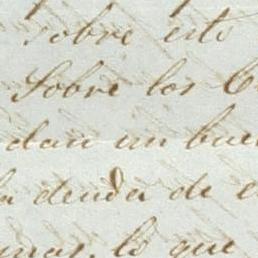 Sobre esto
Sobre los
dan un bue
la deuda de e
lo que